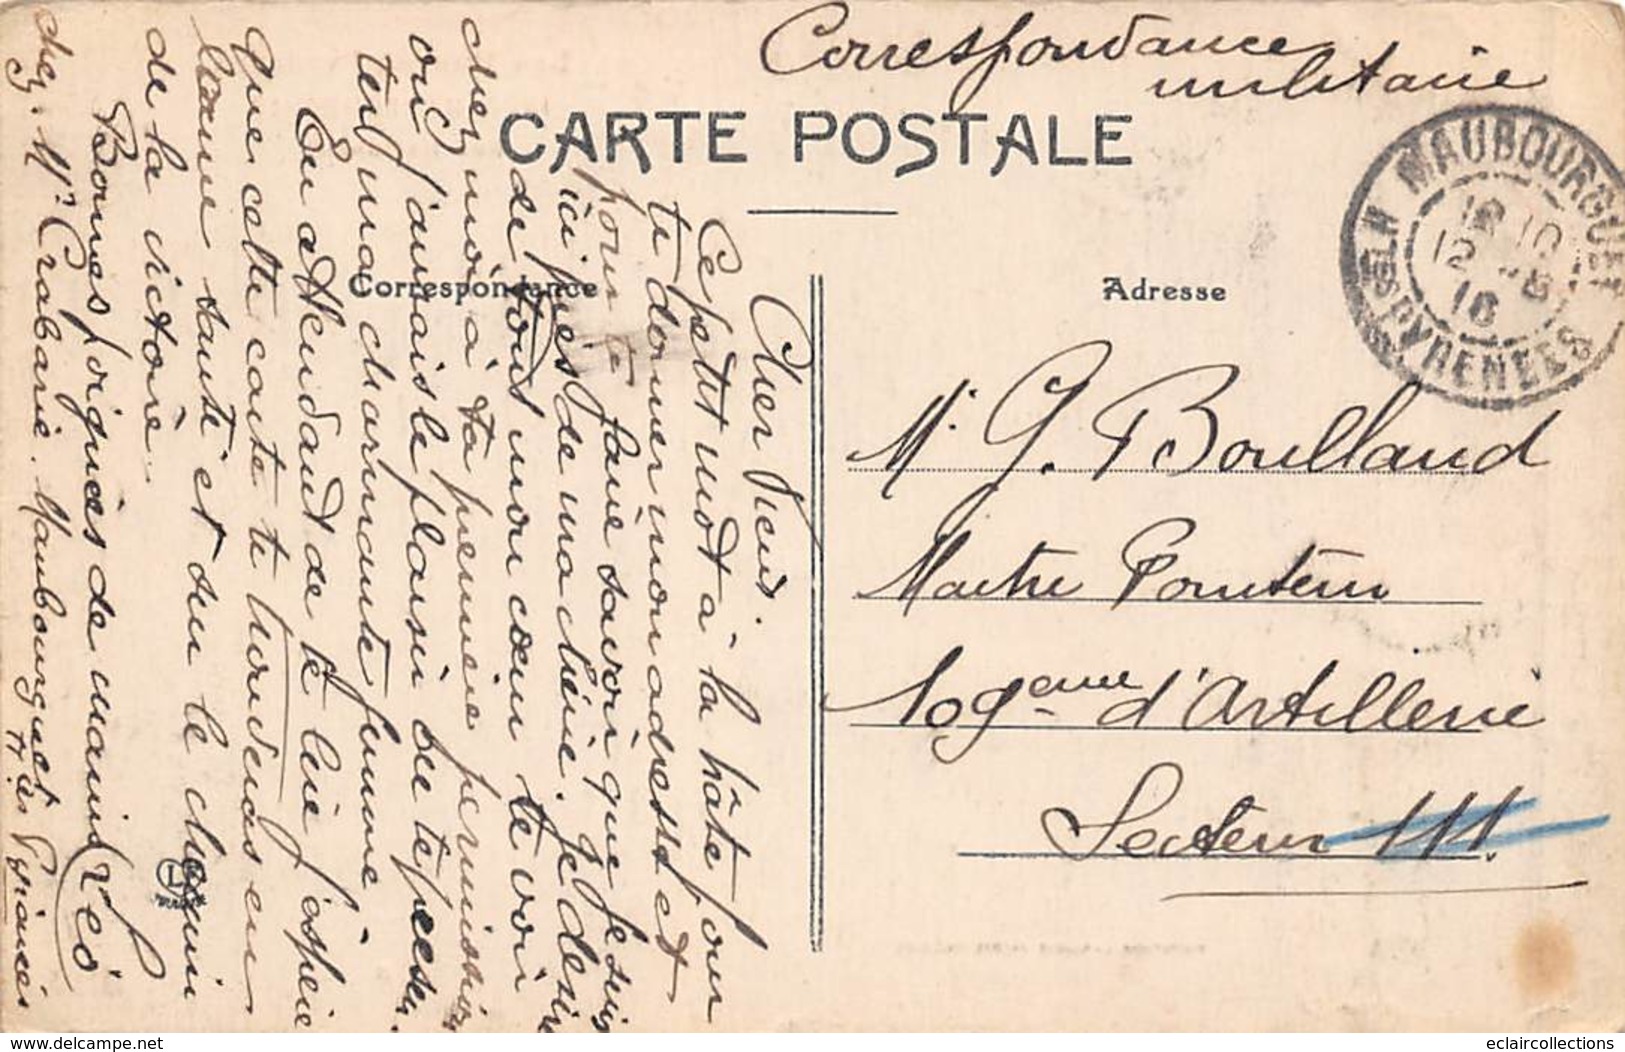 Correspondance
militaire
CARTE POSTALE
MAUBOURGUET
HTES PYRENEES
Correspondance
Adresse
Mr G. Boulland
Maitre Pointeur
109eme d'Artillerie
Secteur 111.
Cher Vieux.
Ce petit mot à la hâte pour
te donner mon adresse et
pour te faire savoir que je suis
ici près de ma chérie. Je désire
de tout mon cœur te voir
chez moi à ta première permission
où j'aurais le plaisir de te
ma charmante femme.
En attendant de te lire j'espère
que cette carte te trouvera en
bonne santé et sur le chemin
de la victoire.
Bonnes poignées de mains
Léo
chez. Mr Crabarié. Maubourguet
Htes Pyrénées
www.delcampe.net
eclaircollections